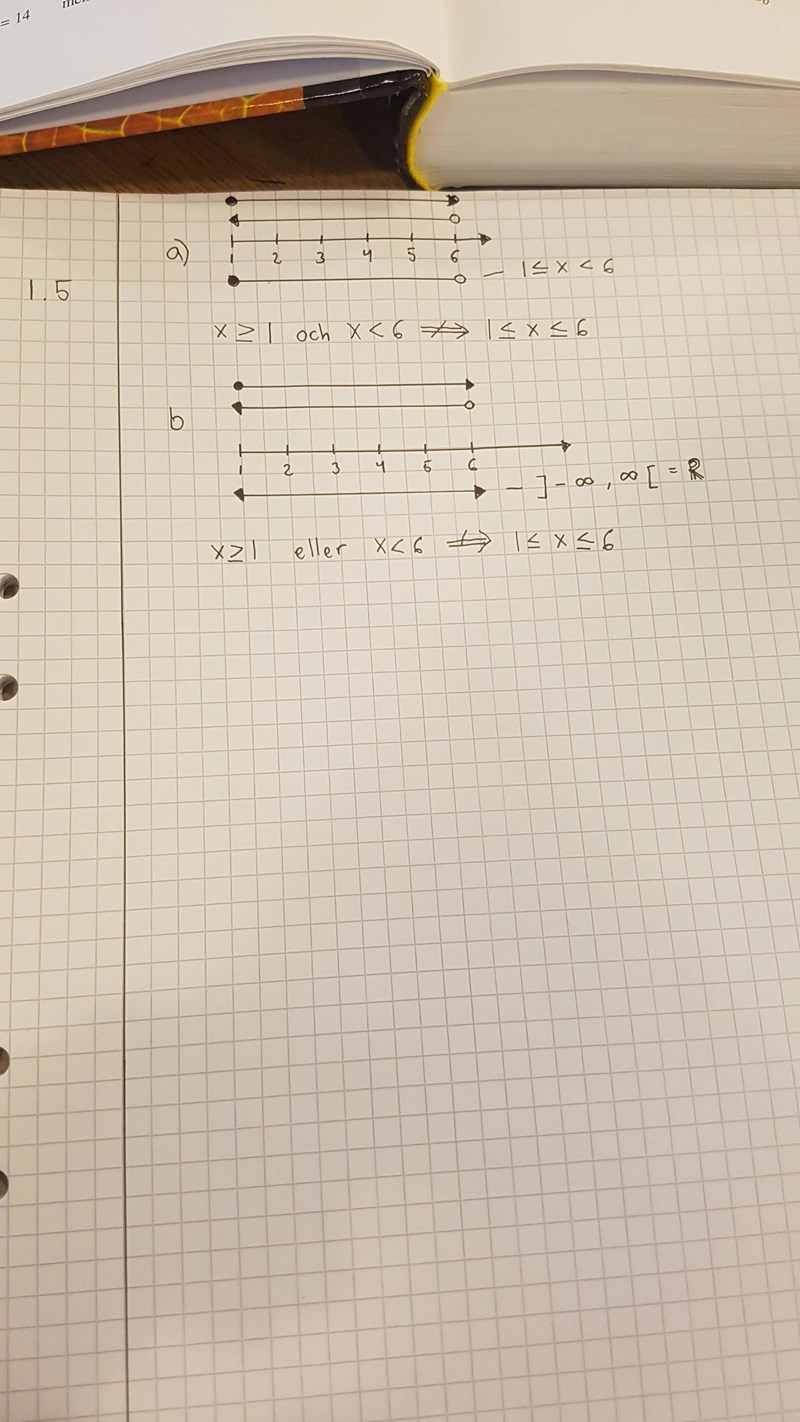 = 14
1.5
a)
1 2 3 4 5 6
— 1 ≤ x < 6
x ≥ 1 och x < 6 ⇎ 1 ≤ x ≤ 6
b
1 2 3 4 5 6
— ]-∞, ∞[ = ℝ
x ≥ 1 eller x < 6 ⇎ 1 ≤ x ≤ 6